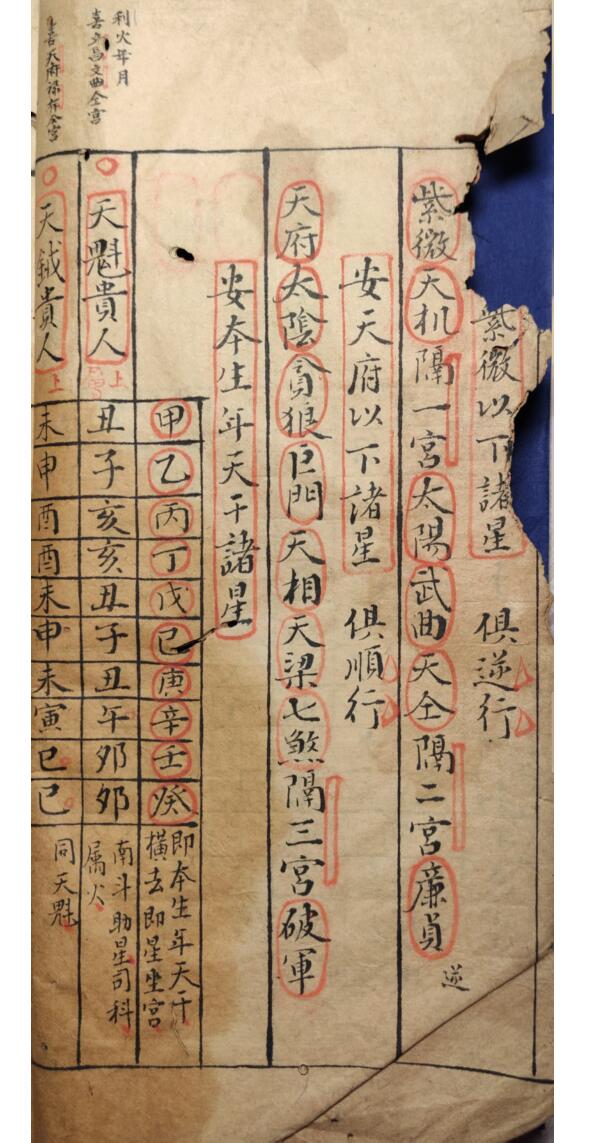 紫微以下諸星 俱逆行
紫微天机隔一宮太陽武曲天仝隔二宮廉貞 逆
安天府以下諸星 俱順行
天府太陰貪狼巨門天相天梁七煞隔三宮破軍
安本生年天干諸星
甲乙丙丁戊己庚辛壬癸
即本生年天干
橫去即星坐宮
利火年月
喜文昌文曲仝宮
天魁貴人 上
丑子亥亥丑子丑午卯卯
南斗助星司科
属火
喜天府祿存仝宮
天鉞貴人 上
未申酉酉未申未寅巳巳
同天魁